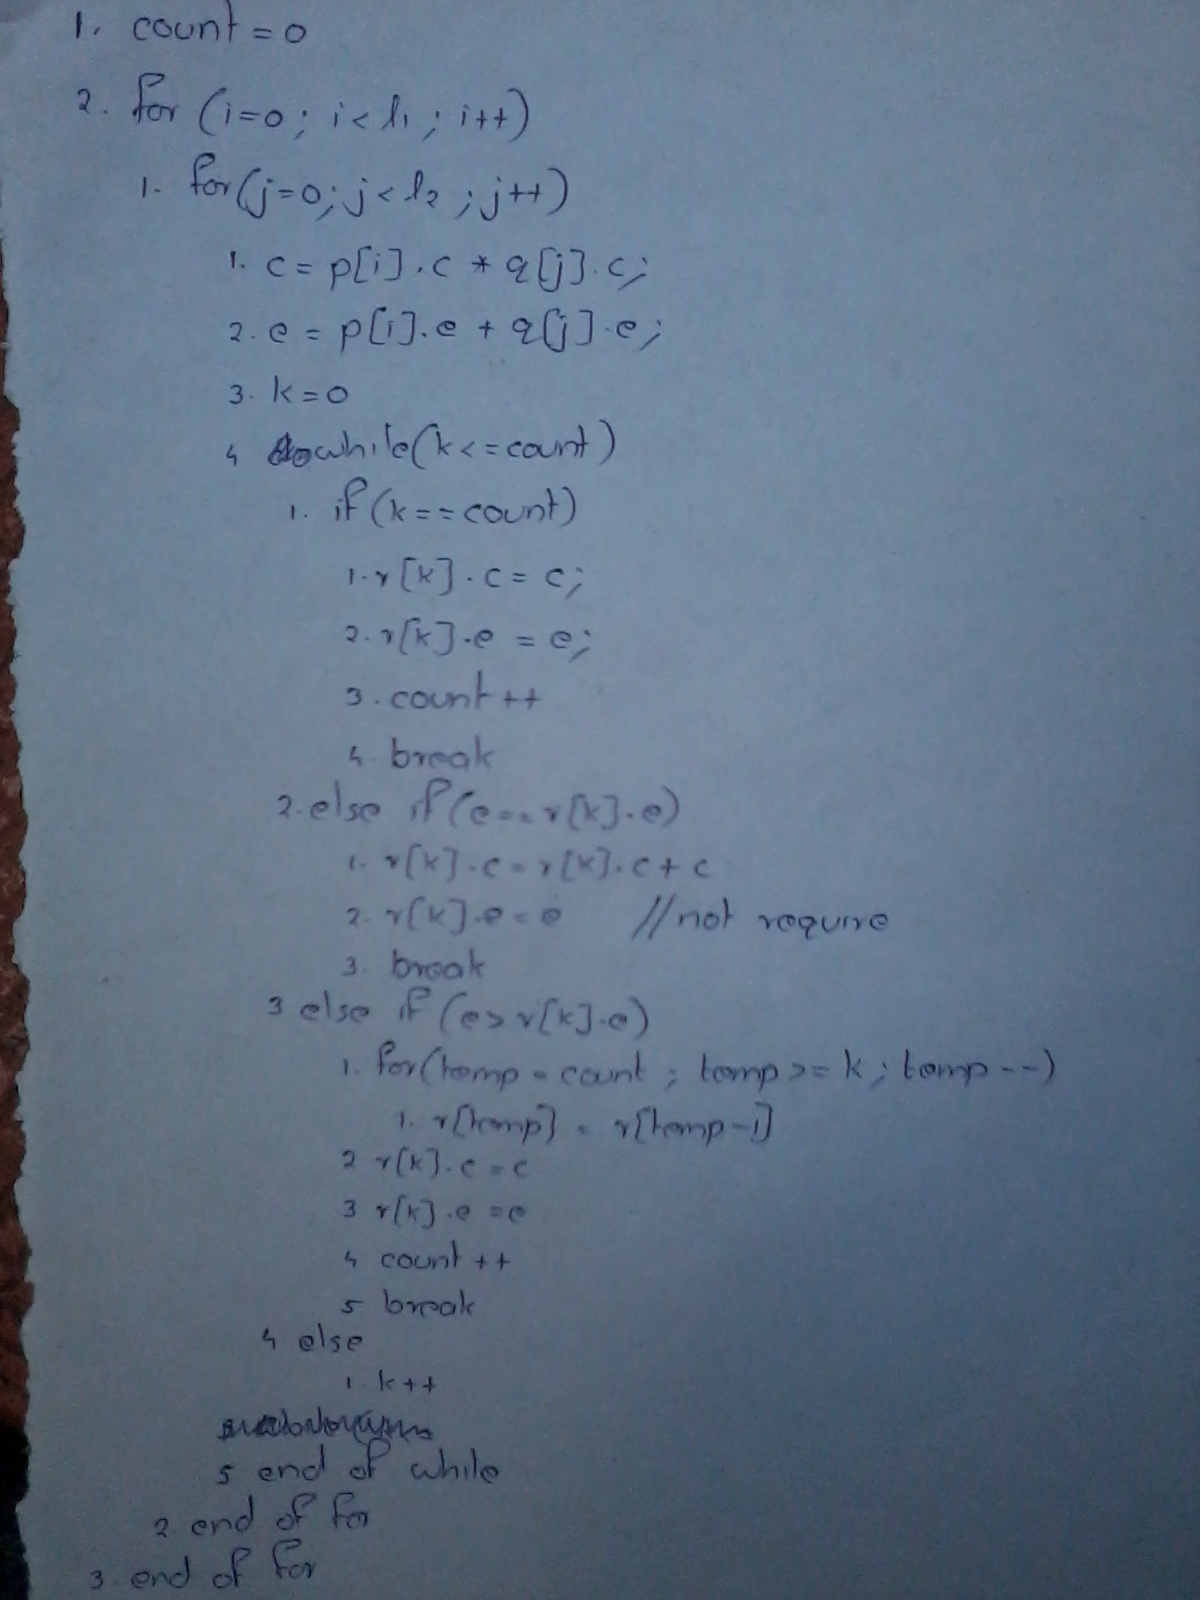 1. count = 0
2. for (i=0; i<l1; i++)
1. for(j=0; j<l2; j++)
1. c = p[i].c * q[j].c;
2. e = p[i].e + q[j].e;
3. k=0
4 while(k<=count)
1. if (k==count)
1. r[k].c = c;
2. r[k].e = e;
3. count++
4. break
2. else if (e==r[k].e)
1. r[k].c = r[k].c + c
2. r[k].e = e //not require
3. break
3 else if (e> r[k].e)
1. for(temp = count; temp >= k; temp--)
1. r[temp] = r[temp-1]
2 r[k].c = c
3 r[k].e = e
4 count++
5 break
4 else
1. k++
5 end of while
2. end of for
3. end of for